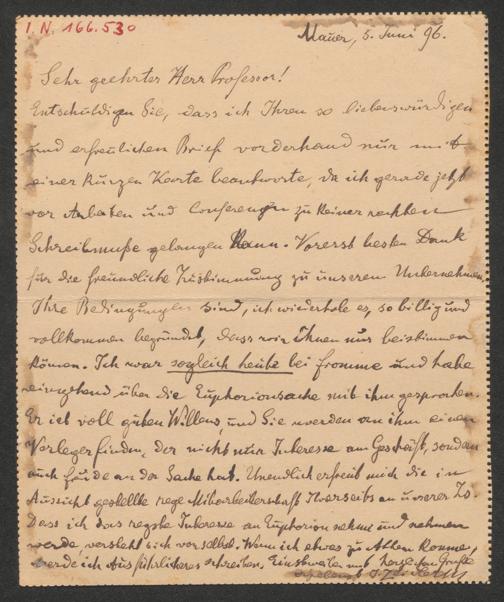 I. N. 166.530
Mauer, 5. Juni 96.
Sehr geehrter Herr Professor!
Entschuldigen Sie, dass ich Ihren so liebenswürdigen
und erfreulichen Brief vorderhand nur mit
einer kurzen Karte beantworte, da ich gerade jetzt
vor Arbeiten und Conferenzen zu keiner rechten
Schreibmuße gelangen kann. Vorerst besten Dank
für die freundliche Zustimmung zu unserem Unternehmen.
Ihre Bedingungen sind, ich wiederhole es, so billig und
vollkommen begründet, dass wir Ihnen nur beistimmen
können. Ich war sogleich heute bei Fromme und habe
eingehend über die Euphorionsache mit ihm gesprochen.
Er ist voll guten Willens, und Sie werden an ihm einen
Verleger finden, der nicht nur Interesse am Geschäft, sondern
auch Freude an der Sache hat. Unendlich erfreut mich die in
Aussicht gestellte rege Mitarbeiterschaft Ihrerseits an unserer Zs.
Dass ich das regste Interesse an Euphorion nehme und nehmen
werde, versteht sich von selbst. Wenn ich etwas zu Athem komme,
werde ich Ausführlicheres schreiben. Einstweilen mit herzlichen Grüßen
ergebenst J. Zeidler